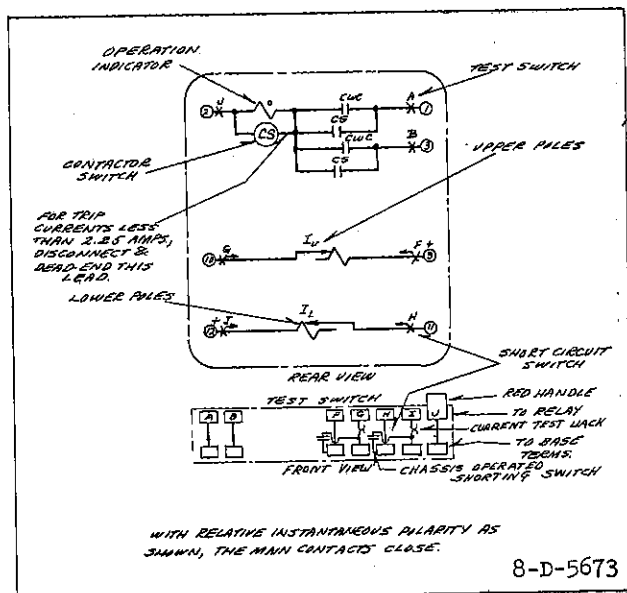 OPERATION
INDICATOR
TEST SWITCH
2 J
O
CWC
A 1
CS
CS
CWC
B 3
CS
CONTACTOR
SWITCH
UPPER POLES
FOR TRIP
CURRENTS LESS
THAN 2.25 AMPS,
DISCONNECT &
DEAD-END THIS
LEAD.
10 G
IU
F + 9
LOWER POLES
+ 12 I
IL
H 11
SHORT CIRCUIT
SWITCH
REAR VIEW
RED HANDLE
TEST SWITCH
A B F G H I J
TO RELAY
CURRENT TEST JACK
TO BASE
TERMS.
FRONT VIEW
CHASSIS OPERATED
SHORTING SWITCH
WITH RELATIVE INSTANTANEOUS POLARITY AS
SHOWN, THE MAIN CONTACTS CLOSE.
8-D-5673